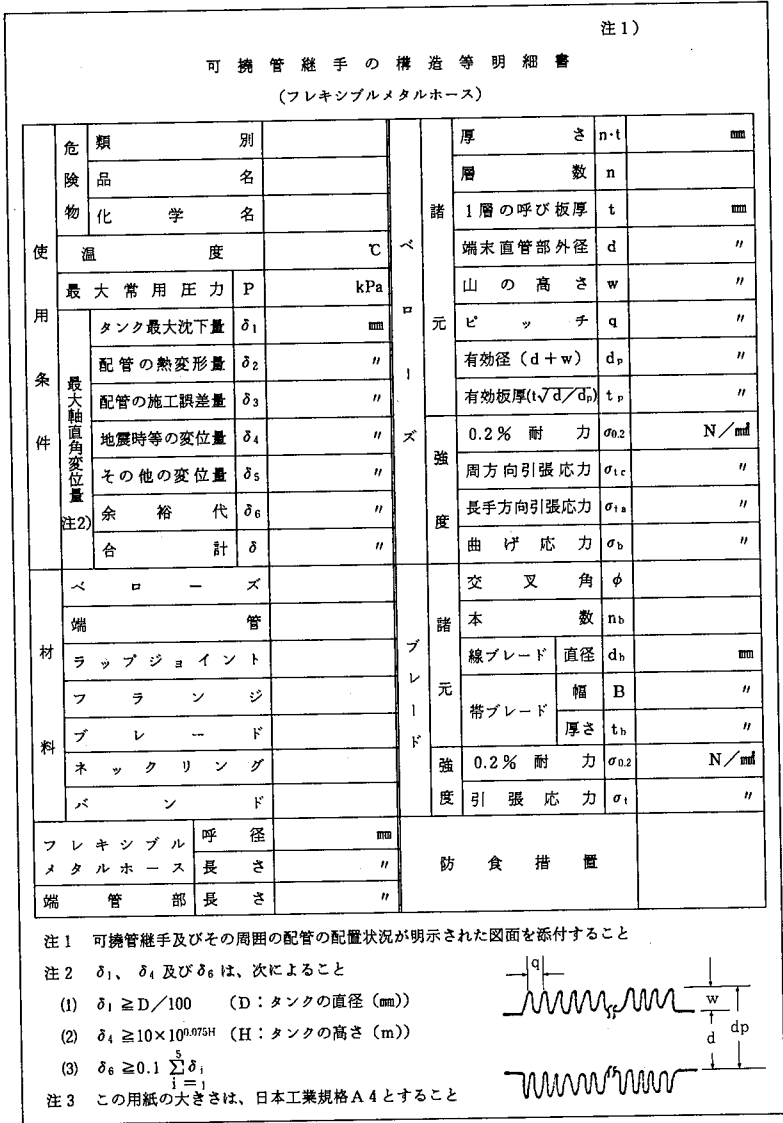 注1)
可撓管継手の構造等明細書
(フレキシブルメタルホース)
使用条件
危険物
類別
品名
化学名
温度 ℃
最大常用圧力 P kPa
最大軸直角変位量 注2)
タンク最大沈下量 δ1 ㎜
配管の熱変形量 δ2 〃
配管の施工誤差量 δ3 〃
地震時等の変位量 δ4 〃
その他の変位量 δ5 〃
余裕代 δ6 〃
合計 δ 〃
材料
ベローズ
端管
ラップジョイント
フランジ
ブレード
ネックリング
バンド
フレキシブルメタルホース
呼径 ㎜
長さ 〃
端管部 長さ 〃
ベローズ
諸元
厚さ n・t ㎜
層数 n
1層の呼び板厚 t ㎜
端末直管部外径 d 〃
山の高さ w 〃
ピッチ q 〃
有効径(d+w) dp 〃
有効板厚(t√d/dp) tp 〃
強度
0.2%耐力 σ0.2 N/㎟
周方向引張応力 σtc 〃
長手方向引張応力 σta 〃
曲げ応力 σb 〃
ブレード
諸元
交叉角 φ
本数 nb
線ブレード 直径 db ㎜
帯ブレード 幅 B 〃
厚さ tb 〃
強度
0.2%耐力 σ0.2 N/㎟
引張応力 σt 〃
防食措置
注1 可撓管継手及びその周囲の配管の配置状況が明示された図面を添付すること
注2 δ1、δ4及びδ6は、次によること
(1) δ1≧D/100 (D:タンクの直径(㎜))
(2) δ4≧10×10^0.075H (H:タンクの高さ(m))
(3) δ6≧0.1 5Σi=1 δi
注3 この用紙の大きさは、日本工業規格A4とすること
q
w
d
dp